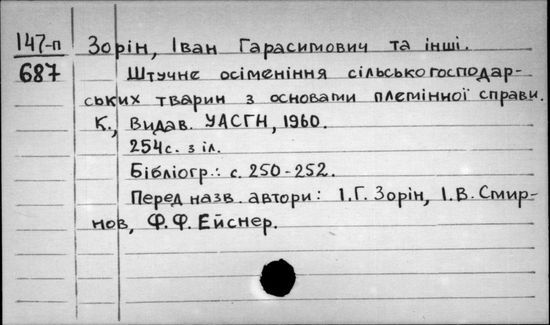 147-п Зорін, Іван Гарасимович та інші.
687 Штучне осіменіння сільськогосподар-
ських тварин з основами племінної справи.
К., Видав. УАСГН, 1960.
254с. з іл.
Бібліогр.: с. 250-252.
Перед назв. автори: І.Г. Зорін, І.В. Смир-
нов, Ф.Ф. Ейснер.